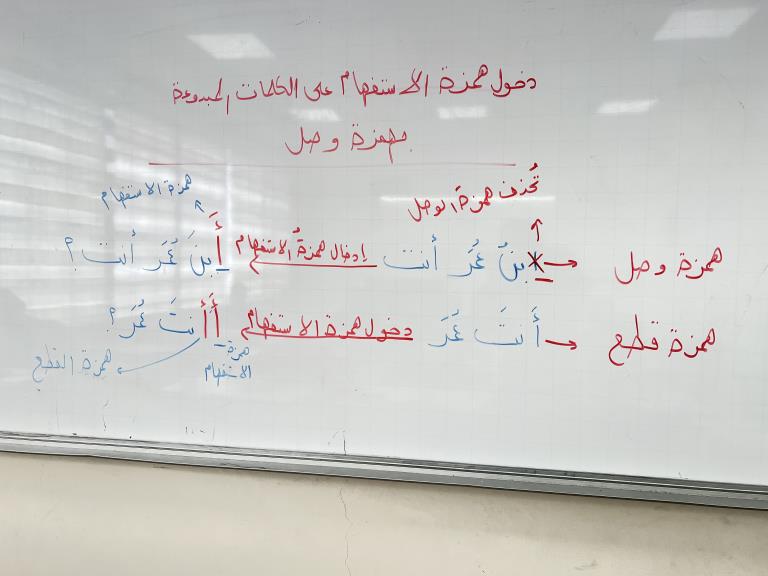 دخول همزة الاستفهام على الكلمات المبدوءة
بهمزة وصل
تُحذف همزة الوصل
همزة الاستفهام
همزة وصل ← ابنُ عُمَر أنت إدخال همزةُ الاستفهام أَبنُ عُمَر أنت؟
همزة قطع ← أَنتَ عُمَر دخول همزة الاستفهام أَأَنتَ عُمَر؟
همزة الاستفهام
همزة القطع